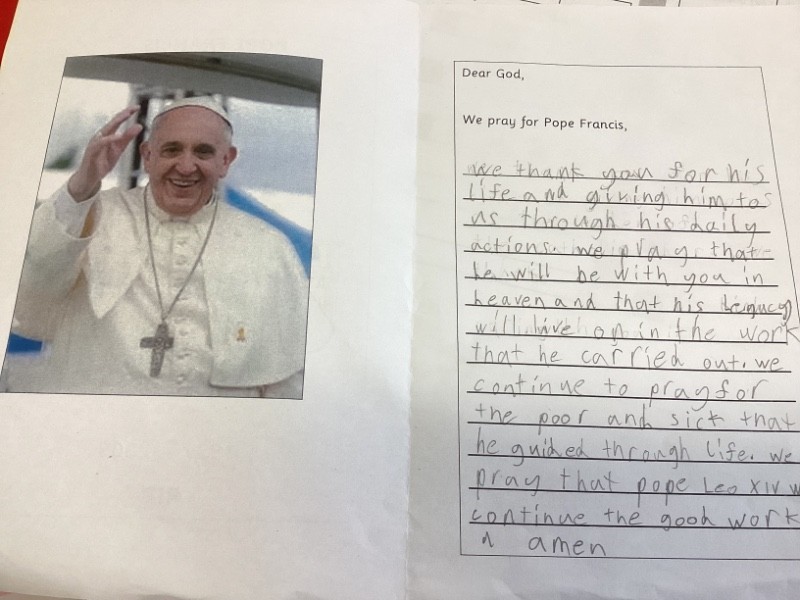 Dear God,
We pray for Pope Francis,
we thank you for his
life and giving him to
us through his daily
actions. we pray that
he will be with you in
heaven and that his legucy
will live on in the work
that he carried out. we
continue to pray for
the poor and sick that
he guided through life. we
pray that pope Leo XIV w
continue the good work
amen